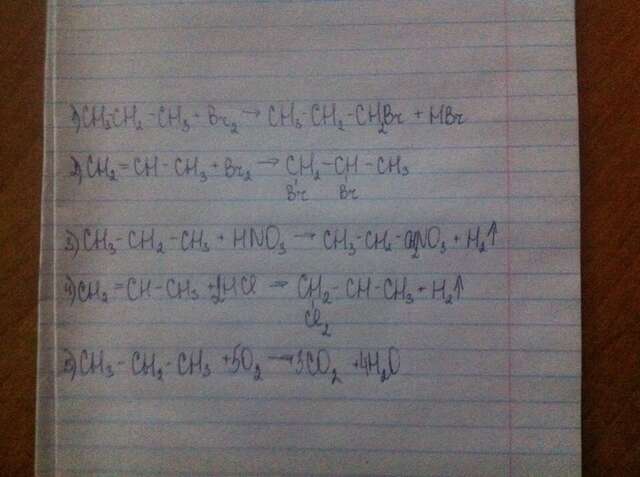 1) CH₃CH₂-CH₃ + Br₂ → CH₃-CH₂-CH₂Br + HBr
2) CH₂=CH-CH₃ + Br₂ → CH₂-CH-CH₃
Br Br
3) CH₃-CH₂-CH₃ + HNO₃ → CH₃-CH₂-CH₂NO₃ + H₂↑
4) CH₂=CH-CH₃ + 2HCl → CH₂-CH-CH₃ + H₂↑
Cl₂
5) CH₃-CH₂-CH₃ + 5O₂ → 3CO₂ + 4H₂O